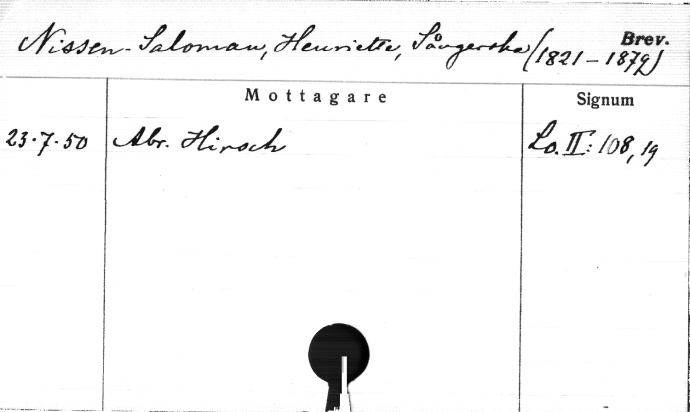 Brev.
Nissen-Saloman, Henriette, Sångerska (1821-1879)
Mottagare Signum
23.7.50 Abr. Hirsch Lo. II: 108, 19